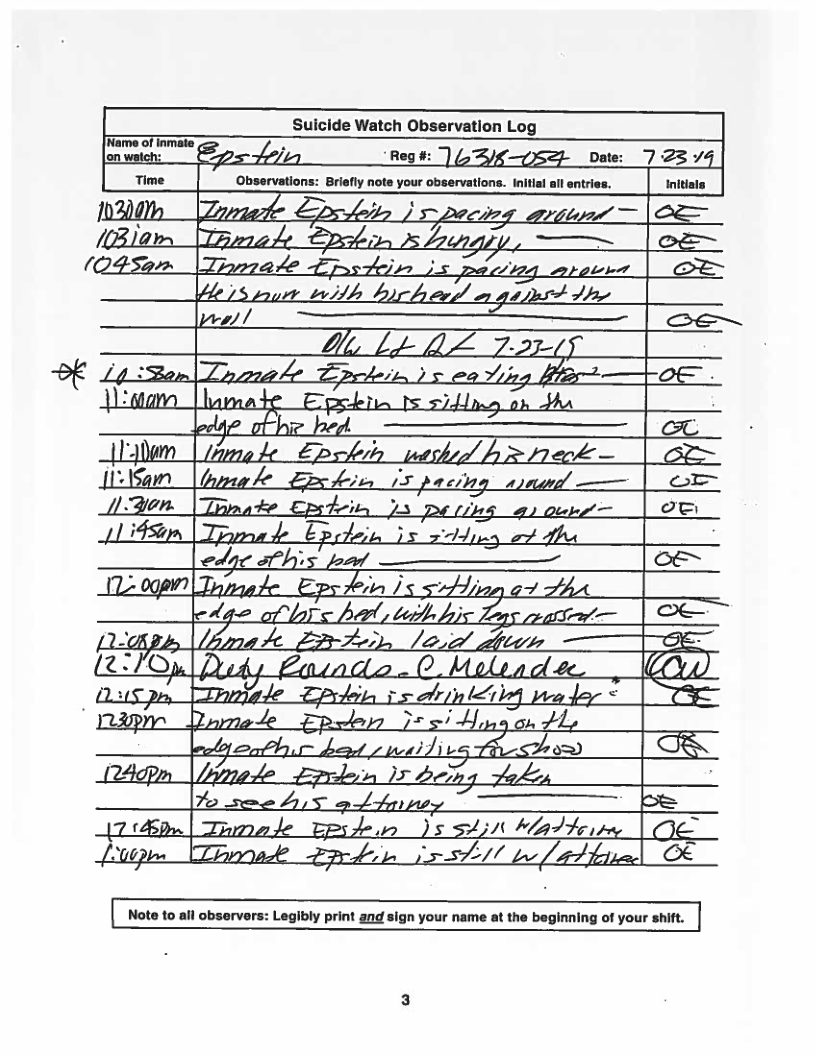 Suicide Watch Observation Log
Name of Inmate on watch: Epstein Reg #: 76318-054 Date: 7-23-19
Time Observations: Briefly note your observations. Initial all entries. Initials
1030am Inmate Epstein is pacing around — OE
1031am Inmate Epstein is hungry, — OE
1045am Inmate Epstein is pacing around OE
He is now with his head against the
wall — OE
7-23-19
Inmate Epstein is eating — OE
11:00am Inmate Epstein is sitting on the
edge of his bed. — OE
11:10am Inmate Epstein washed his neck — OE
11:15am Inmate Epstein is pacing around — OE
11:30am Inmate Epstein is pacing around — OE
11:45am Inmate Epstein is sitting at the
edge of his bed — OE
12:00pm Inmate Epstein is sitting at the
edge of his bed, with his legs crossed — OE
Inmate Epstein laid down — OE
12:10pm Duty Rounds - C. Melendez
12:15pm Inmate Epstein is drinking water OE
1230pm Inmate Epstein is sitting on the
edge of his bed, waiting for OE
1240pm Inmate Epstein is being taken
to see his attorney — OE
12:45pm Inmate Epstein is still w/attorney OE
1:00pm Inmate Epstein is still w/ OE
Note to all observers: Legibly print and sign your name at the beginning of your shift.
3